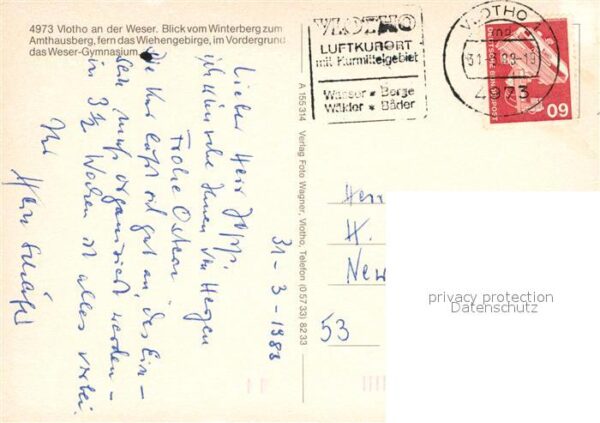 4973 Vlotho an der Weser. Blick vom Winterberg zum
Amthausberg, fern das Wiehengebirge, im Vordergrund
das Weser-Gymnasium.
31-3-1988
Lieber Herr
ich wünsche Ihnen von Herzen
Frohe Ostern
Die Kur läßt sich gut an, das Ein-
sein muß organisiert werden -
in 3½ Wochen ist alles vorbei.
Ihr
A 155 314 Verlag Foto Wagner, Vlotho, Telefon (0 57 33) 82 33
VLOTHO
LUFTKURORT
mit Kurmittelgebiet
Wasser * Berge
Wälder * Bäder
VLOTHO
4973
DEUTSCHE BUNDESPOST
60
Herr
H.
New
53
privacy protection
Datenschutz